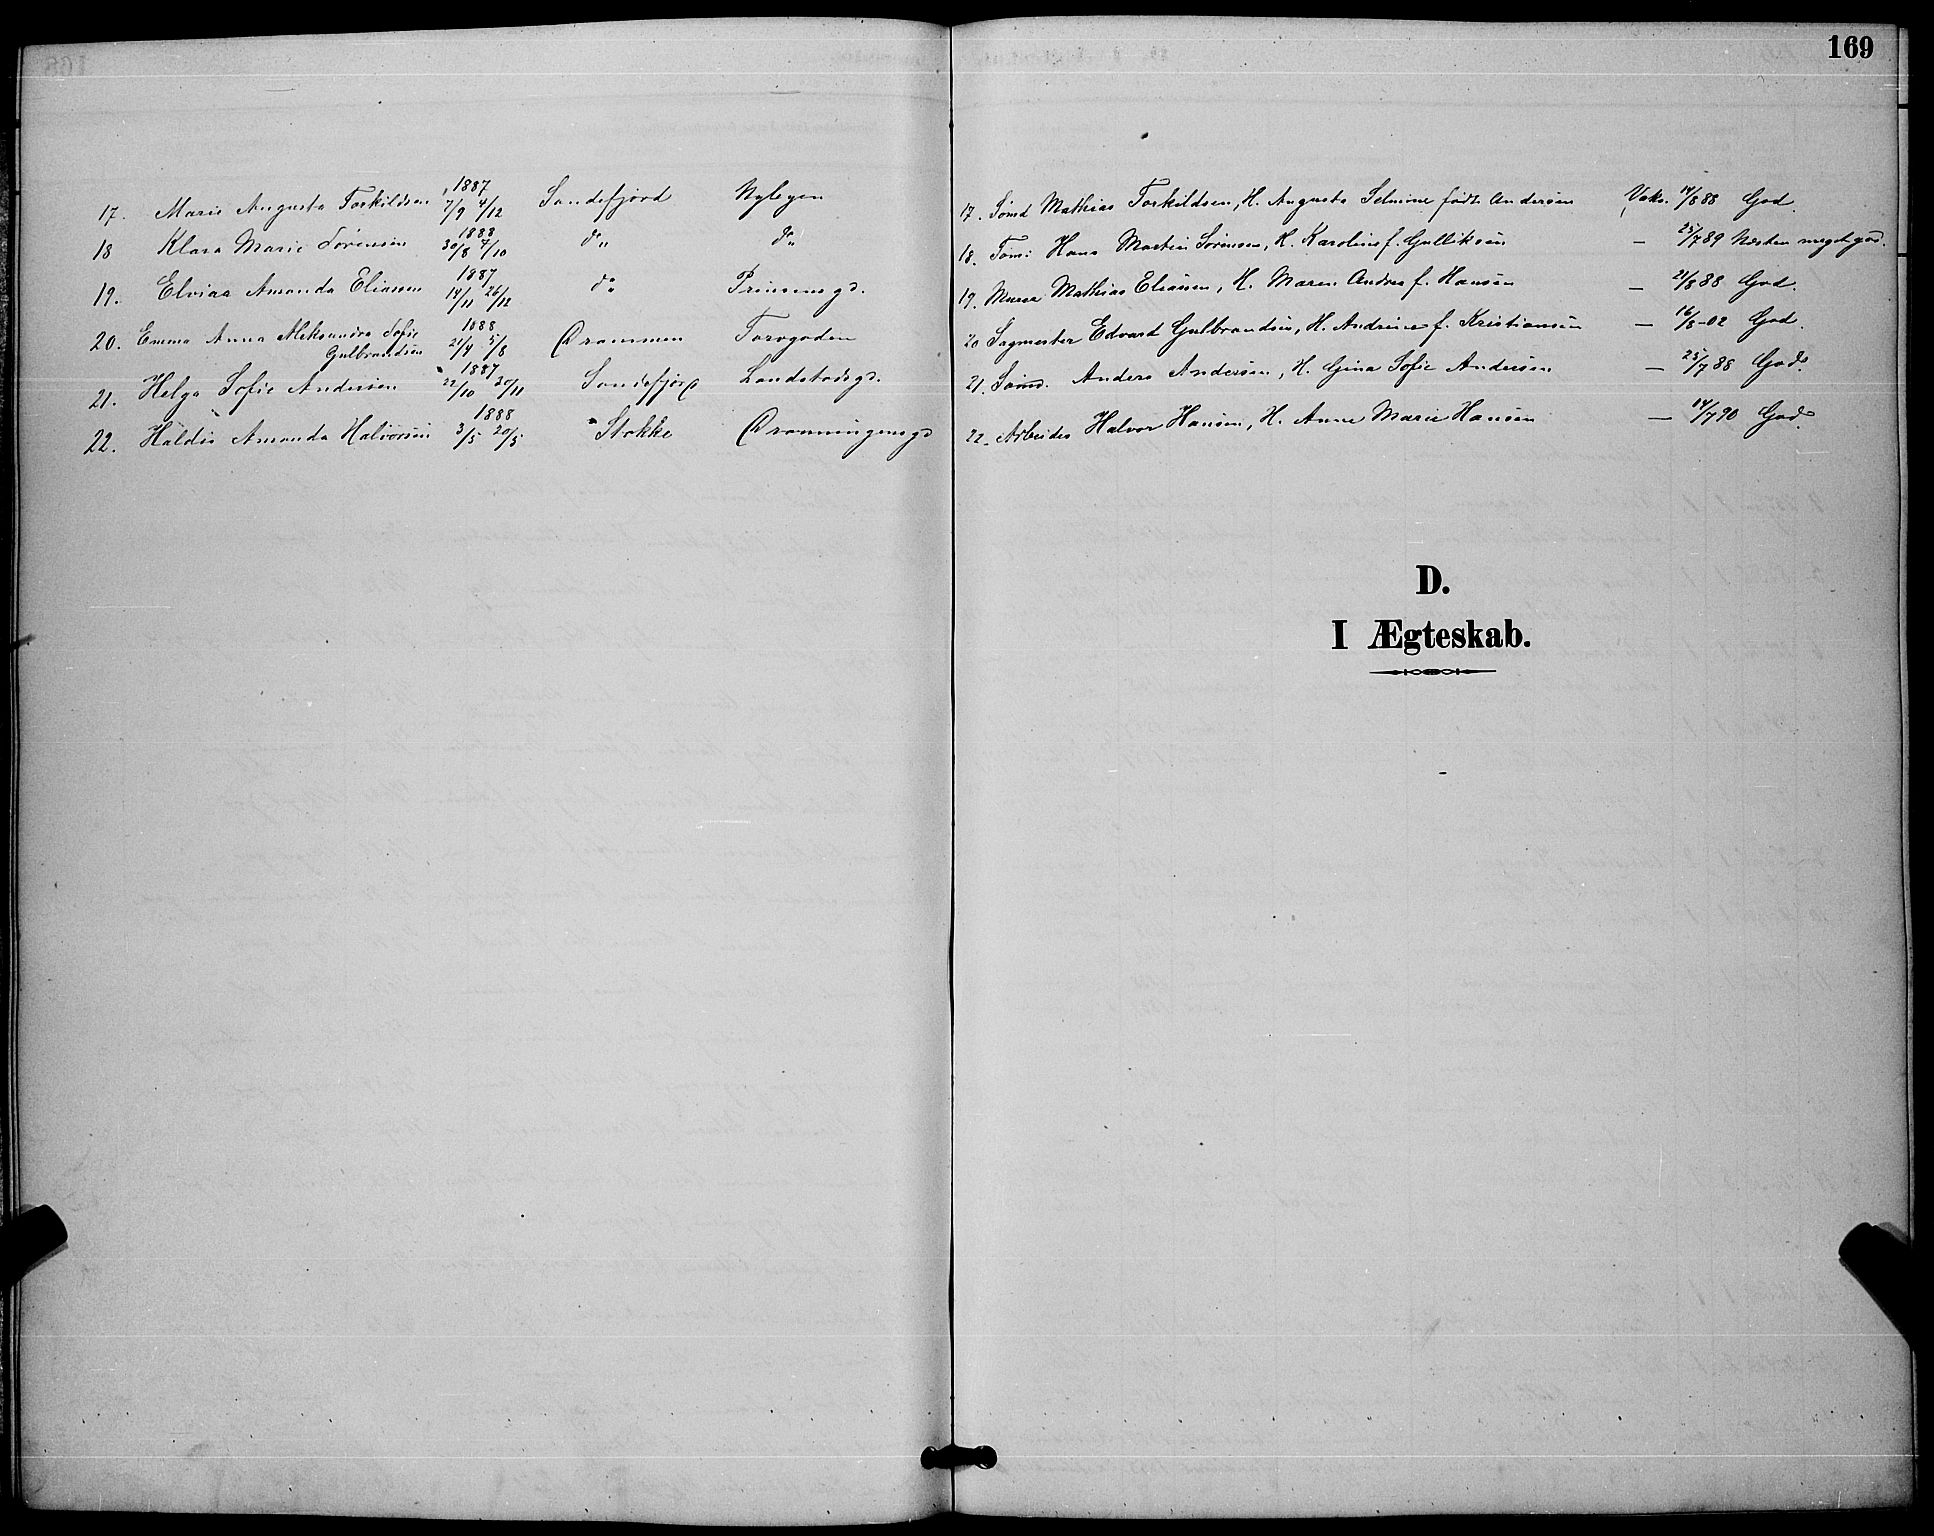 169
17. Marie Augusta Torkildsen 1887 7/9 4/12 Sandefjord Nybyen 17. Sømd Mathias Torkildsen, H. Augusta Selmine født Andersen Vaks. 14/8 88 God.
18 Klara Marie Sørensen 1888 30/8 7/10 do„ do„ 18. Tømr Hans Martin Sørensen, H. Karoline f. Gulliksen — 25/7 89 Næsten meget god.
19. Elvina Amanda Eliassen 1887 14/11 26/12 do„ Prinsensgd. 19. Murer Mathias Eliasen, H. Maren Andrea f. Hansen — 21/8 88 God.
20. Emma Anna Aleksandra Sofie
Gulbrandsen 1888 21/4 5/8 Drammen Torvgaden 20 Sagmester Edvard Gulbrandsen, H. Andrine f. Kristiansen — 16/8-02 God.
21. Helga Sofie Andersen 1887 22/10 30/11 Sandefjord Landstadsgd. 21. Sømd. Anders Andersen, H. Gina Sofie Andersen — 25/7 88 God.
22. Haldis Amanda Halvorsen 1888 3/5 20/5 Stokke Dronningensgd 22. Arbeider Halvor Hansen, H. Anne Marie Hansen — 14/7 90 God.
D.
I Ægteskab.